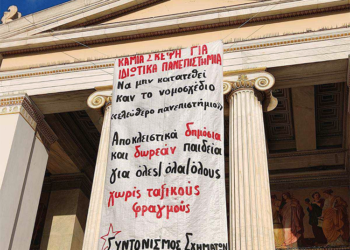 ΚΑΜΙΑ ΣΚΕΨΗ ΓΙΑ
ΙΔΙΩΤΙΚΑ ΠΑΝΕΠΙΣΤΗΜΙΑ
Να μην κατατεθεί
καν το νομοσχέδιο
«ελεύθερο πανεπιστήμιο»
Αποκλειστικά δημόσια
και δωρεάν παιδεία
για όλες/όλα/όλους
χωρίς ταξικούς
φραγμούς
ΣΥΝΤΟΝΙΣΜΟΣ ΣΧΗΜΑΤΩΝ